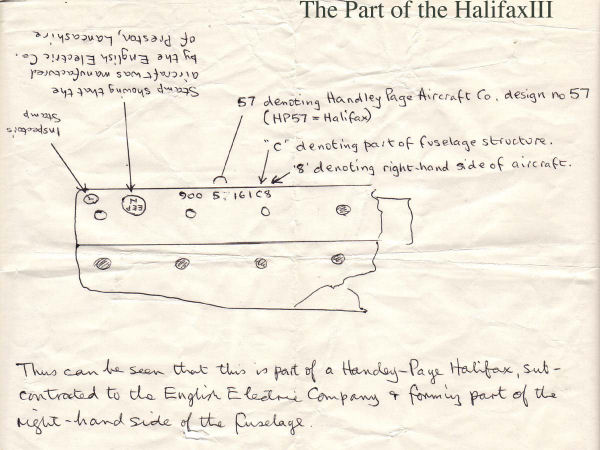 The Part of the HalifaxIII
Stamp showing that the
aircraft was manufactured
by the English Electric Co.
of Preston, Lancashire
Inspector's
Stamp
57 denoting Handley Page Aircraft Co. design no 57
(HP57 = Halifax)
"C" denoting part of fuselage structure.
'8' denoting right-hand side of aircraft.
EEP
Thus can be seen that this is part of a Handley-Page Halifax, sub-
contrated to the English Electric Company & forming part of the
right-hand side of the fuselage.